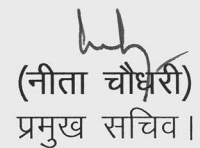 (नीता चौधरी)
प्रमुख सचिव।